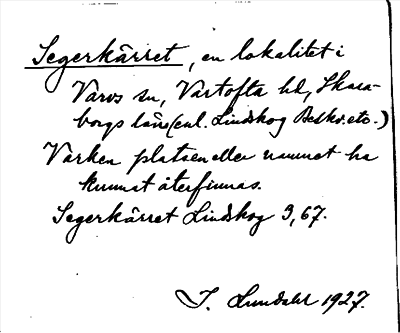 Segerkärret, en lokalitet i
Varvs sn, Vartofta hd, Skara-
borgs län (enl. Lindskog Beskr. etc.)
Varken platsen eller namnet ha
kunnat återfinnas.
Segerkärret Lindskog 3,67.
J. Lundahl 1927.